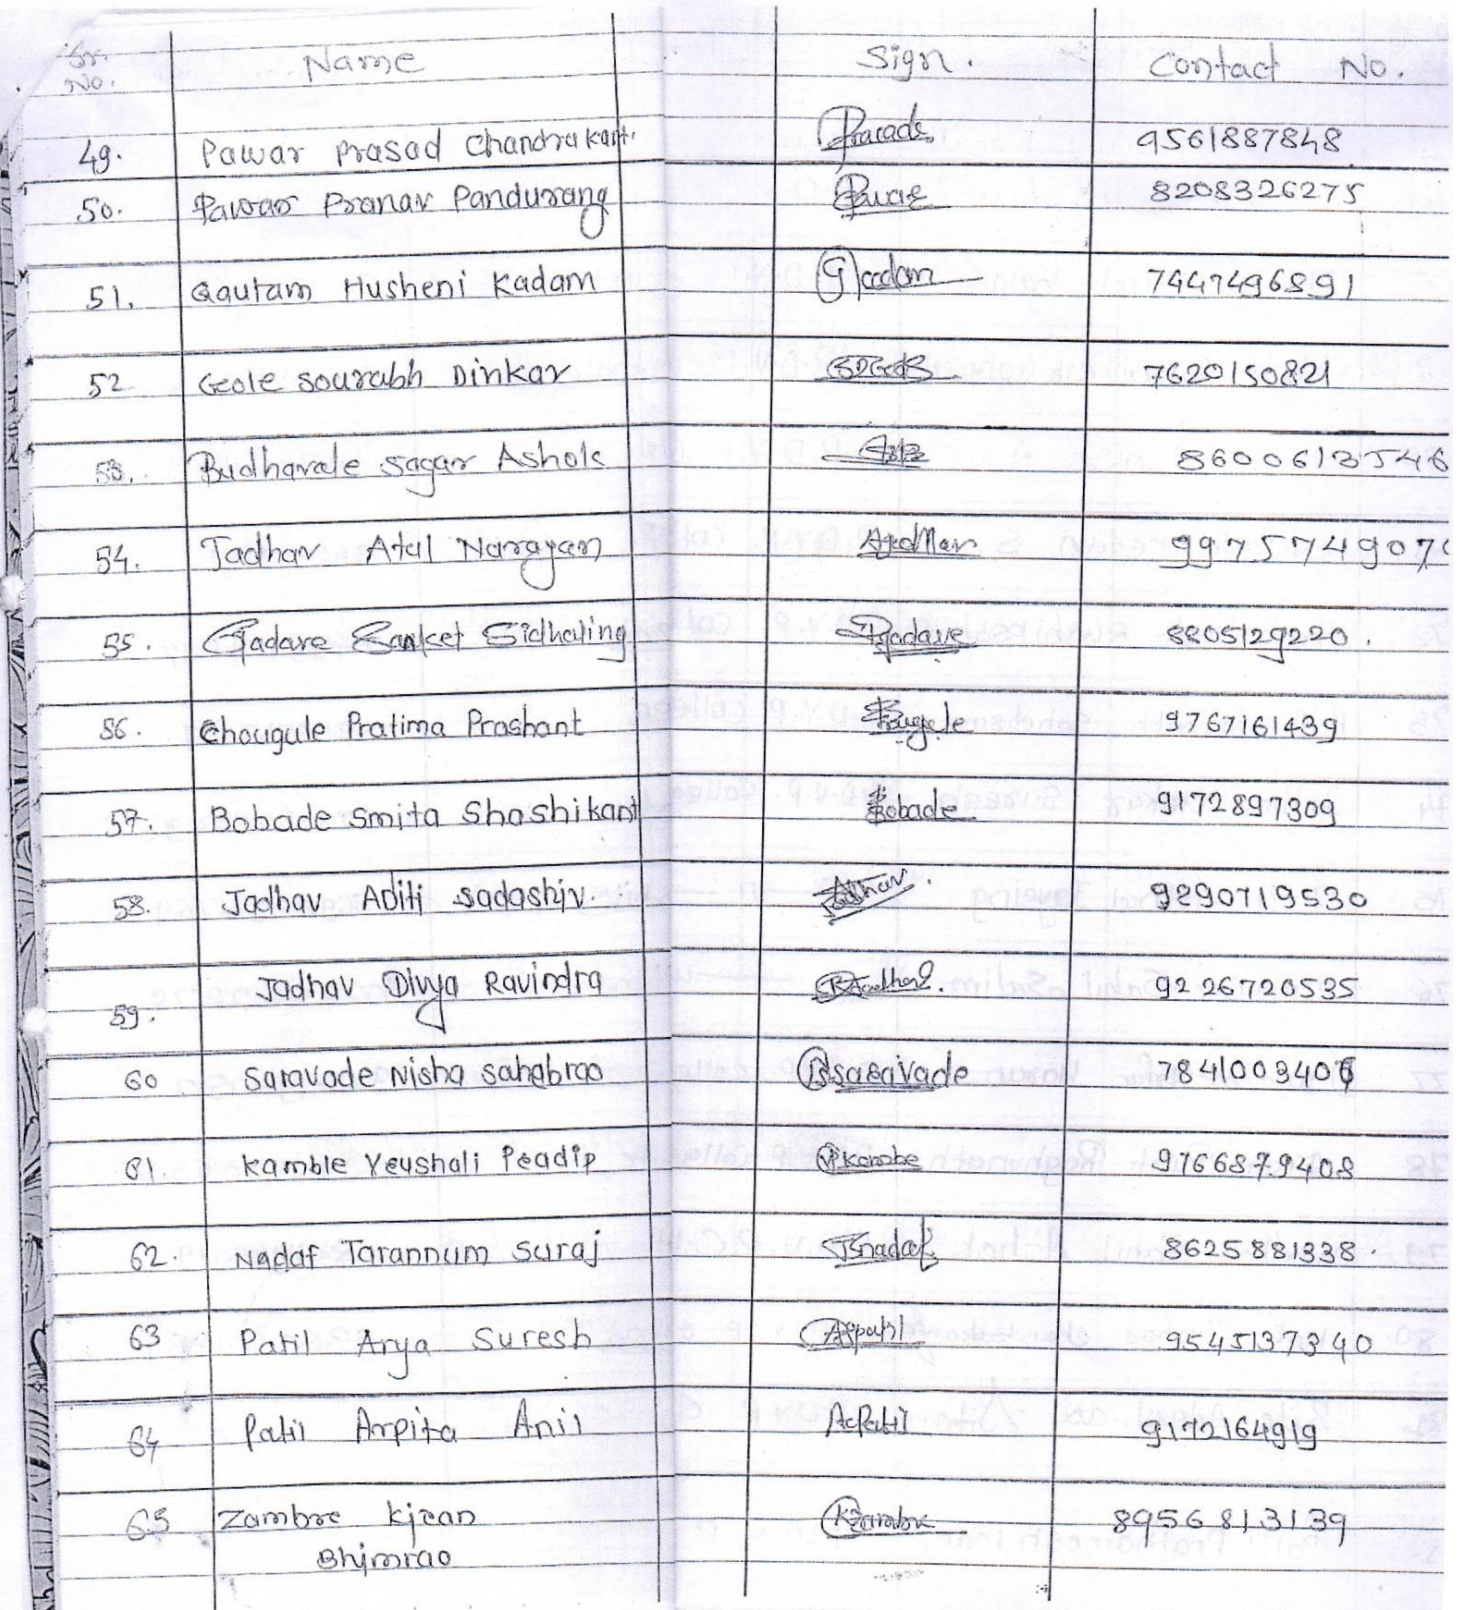 Sr. No. Name Sign. Contact No.
49. Pawar Prasad Chandrakant. 9561887848
50. Pawar Pranav Pandurang 8208326275
51. Gautam Husheni Kadam 7447496891
52 Geole Sourabh Dinkar 7620150821
53. Budhavale Sagar Ashok 8600613546
54. Jadhav Atul Narayan 997574907
55. Gadave Sanket Sidhaling Gadave 8805129220.
56. Chougule Pratima Prashant Chougule 9767161439
57. Bobade Smita Shashikant Bobade 9172897309
58. Jadhav Aditi Sadashiv. 9890719530
59. Jadhav Divya Ravindra 9226720535
60 Saravade Nisha Sahebrao Saravade 784100340
61. Kamble Vrushali Pradip Kamble 9766879408
62. Nadaf Tarannum Suraj Nadaf 8625881338.
63 Patil Arya Suresh Aspatil 9545137340
64 Patil Arpita Anil AcPatil 9172164919
65 Zambre Kiran 8956813139
Bhimrao